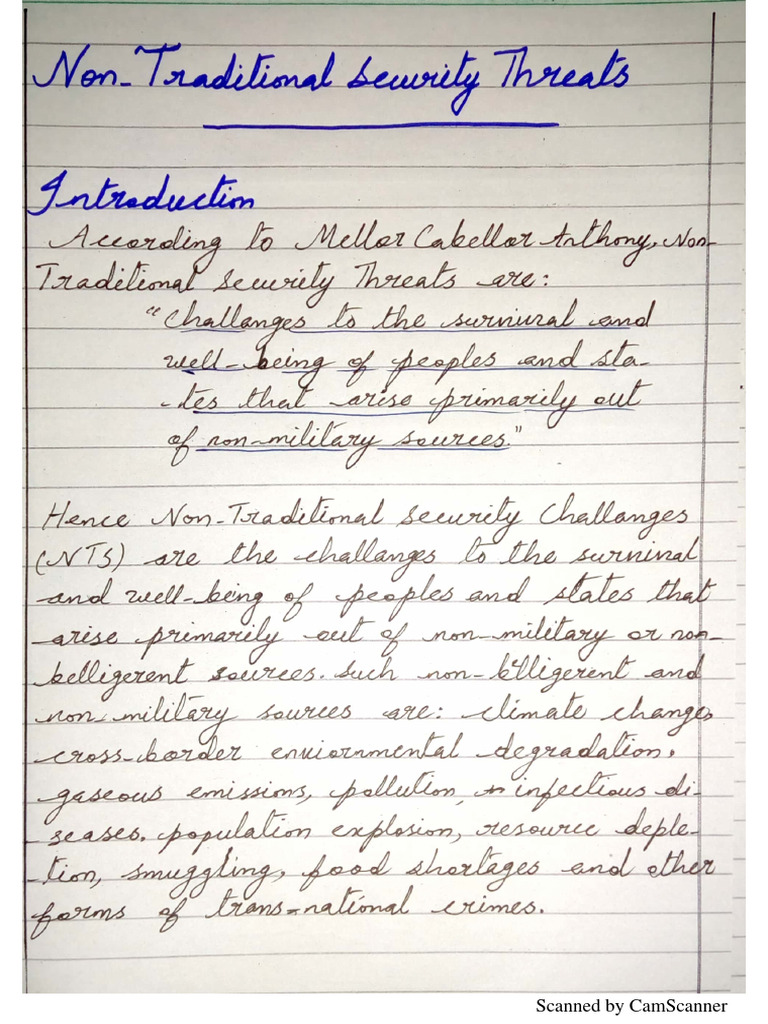 Non-Traditional Security Threats
Introduction
According to Mellor Cabellor Anthony, Non-
Traditional Security Threats are:
"Challanges to the survival and
well-being of peoples and sta-
-tes that arise primarily out
of non-military sources."
Hence Non-Traditional Security Challanges
(NTS) are the challanges to the survival
and well-being of peoples and states that
arise primarily out of non-military or non-
belligerent sources. Such non-belligerent and
non-military sources are: climate change,
cross-border enviornmental degradation,
gaseous emissions, pollution, infectious di-
-seases. population explosion, resource deple-
-tion, smuggling, food shortages and other
forms of trans-national crimes.
Scanned by CamScanner